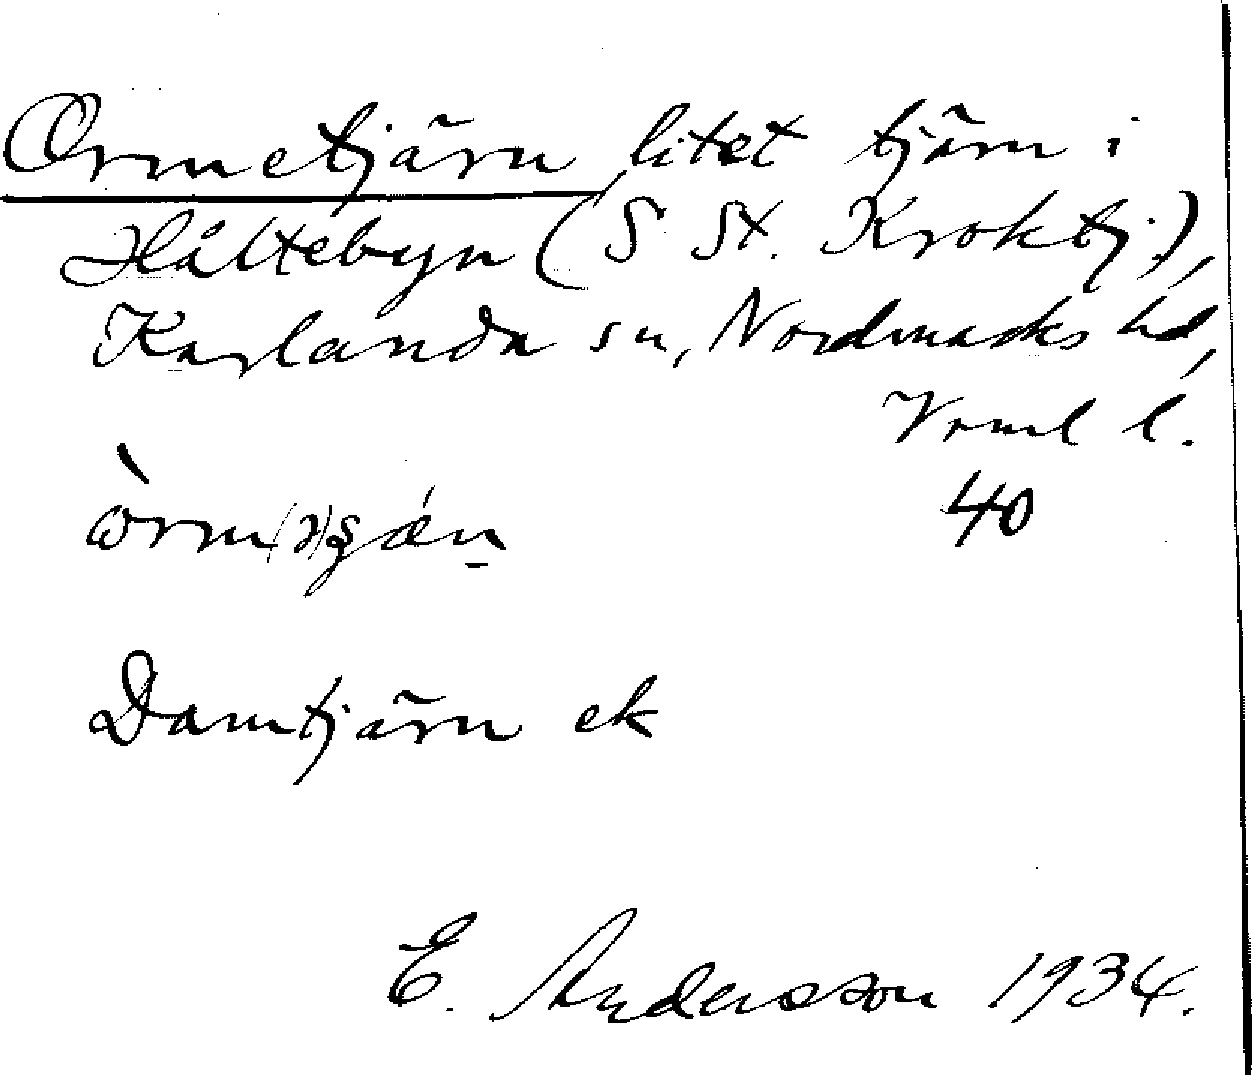 Ormetjärn, litet tjärn i
Håltebyn (S St. Kroktj.),
Karlanda sn, Nordmarks hd,
Vrml l.
40
Damtjärn ek
E. Andersson 1934.